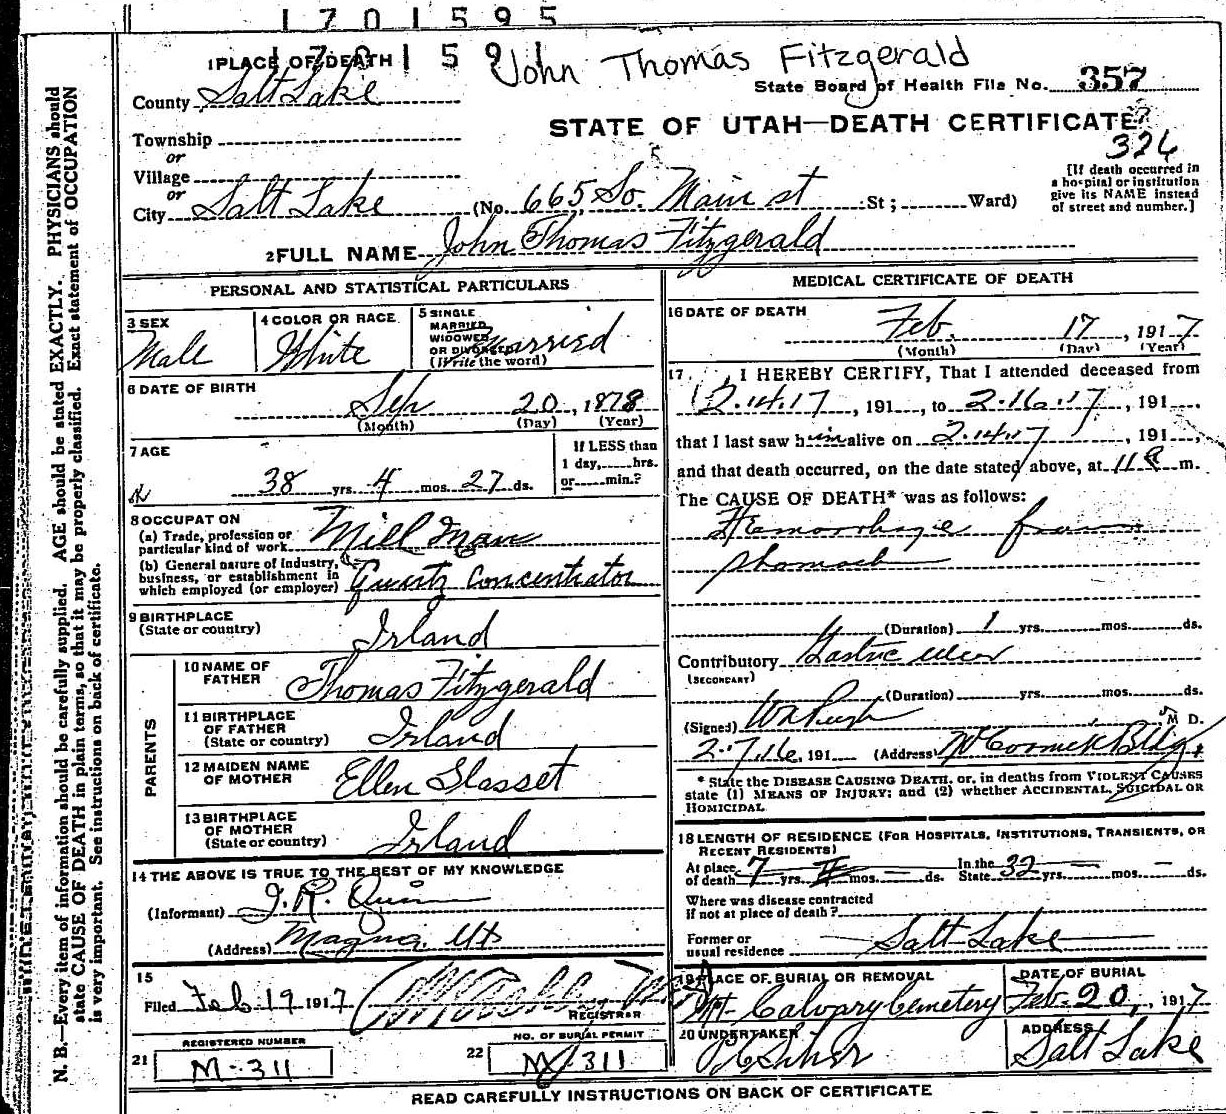 1701595
1701591 John Thomas Fitzgerald
1 PLACE OF DEATH
State Board of Health File No. 357
County Salt Lake
STATE OF UTAH—DEATH CERTIFICATE
326
Township
or
Village
or
City Salt Lake (No. 665 So. Main st St; Ward)
[If death occurred in
a hospital or institution
give its NAME instead
of street and number.]
2 FULL NAME John Thomas Fitzgerald
PERSONAL AND STATISTICAL PARTICULARS
3 SEX
Male
4 COLOR OR RACE
White
5 SINGLE
MARRIED
WIDOWED
OR DIVORCED
(Write the word)
Married
6 DATE OF BIRTH
Sep 20, 1878
(Month) (Day) (Year)
7 AGE
38 yrs. 4 mos. 27 ds.
If LESS than
1 day, hrs.
or min.?
8 OCCUPATION
(a) Trade, profession or
particular kind of work Mill Man
(b) General nature of industry,
business, or establishment in
which employed (or employer) Quartz Concentrator
9 BIRTHPLACE
(State or country) Irland
PARENTS
10 NAME OF
FATHER Thomas Fitzgerald
11 BIRTHPLACE
OF FATHER
(State or country) Irland
12 MAIDEN NAME
OF MOTHER Ellen Slasset
13 BIRTHPLACE
OF MOTHER
(State or country) Irland
14 THE ABOVE IS TRUE TO THE BEST OF MY KNOWLEDGE
(Informant) J. R. Quinn
(Address) Magna, Ut
15
Filed Feb 19 1917
REGISTRAR
REGISTERED NUMBER
21 M-311
NO. OF BURIAL PERMIT
22 M-311
MEDICAL CERTIFICATE OF DEATH
16 DATE OF DEATH
Feb. 17, 1917
(Month) (Day) (Year)
17 I HEREBY CERTIFY, That I attended deceased from
2.14.17, 191 , to 2.16.17, 191 ,
that I last saw him alive on 2.14.17, 191 ,
and that death occurred, on the date stated above, at 11 P m.
The CAUSE OF DEATH* was as follows:
Hemorrhage from
stomach
(Duration) 1 yrs. mos. ds.
Contributory Gastric ulcer
(SECONDARY)
(Duration) yrs. mos. ds.
(Signed) M D.
2.7.16, 191 (Address) McCormick Bldg
* State the DISEASE CAUSING DEATH, or, in deaths from VIOLENT CAUSES
state (1) MEANS OF INJURY; and (2) whether ACCIDENTAL, SUICIDAL OR
HOMICIDAL
18 LENGTH OF RESIDENCE (FOR HOSPITALS, INSTITUTIONS, TRANSIENTS, OR
RECENT RESIDENTS)
At place
of death 7 yrs. mos. — ds. In the
State 32 yrs. — mos. — ds.
Where was disease contracted
if not at place of death?
Former or
usual residence Salt Lake
19 PLACE OF BURIAL OR REMOVAL
Mt- Calvary Cemetery
DATE OF BURIAL
Feb. 20, 1917
20 UNDERTAKER
ADDRESS
Salt Lake
READ CAREFULLY INSTRUCTIONS ON BACK OF CERTIFICATE
N. B.—Every item of information should be carefully supplied. AGE should be stated EXACTLY. PHYSICIANS should
state CAUSE OF DEATH in plain terms, so that it may be properly classified. Exact statement of OCCUPATION
is very important. See instructions on back of certificate.